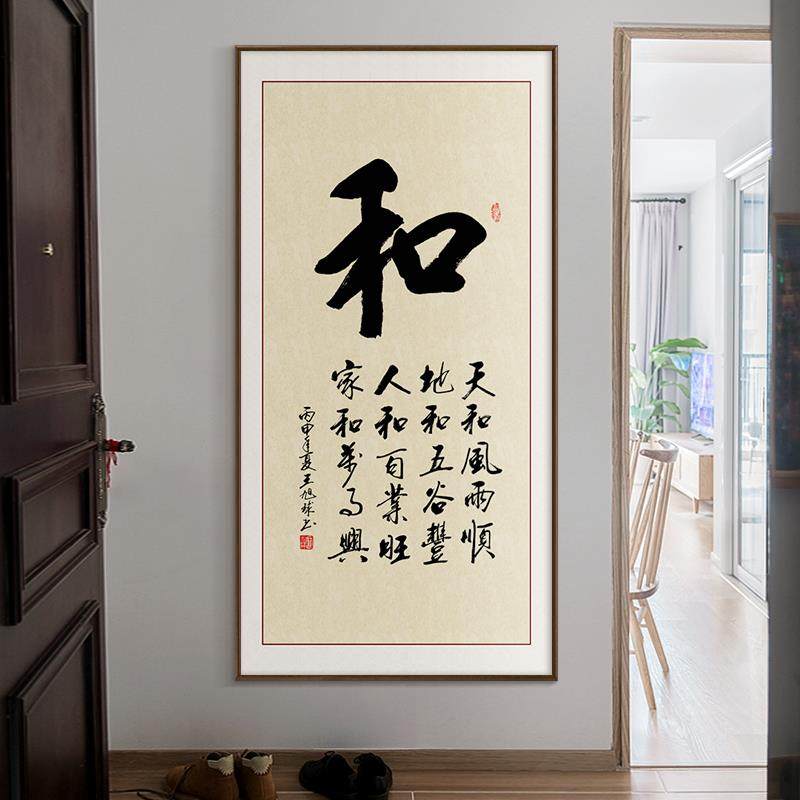 和
天和風雨順
地和五谷豐
人和百業旺
家和萬事興
丙申年夏王旭球书